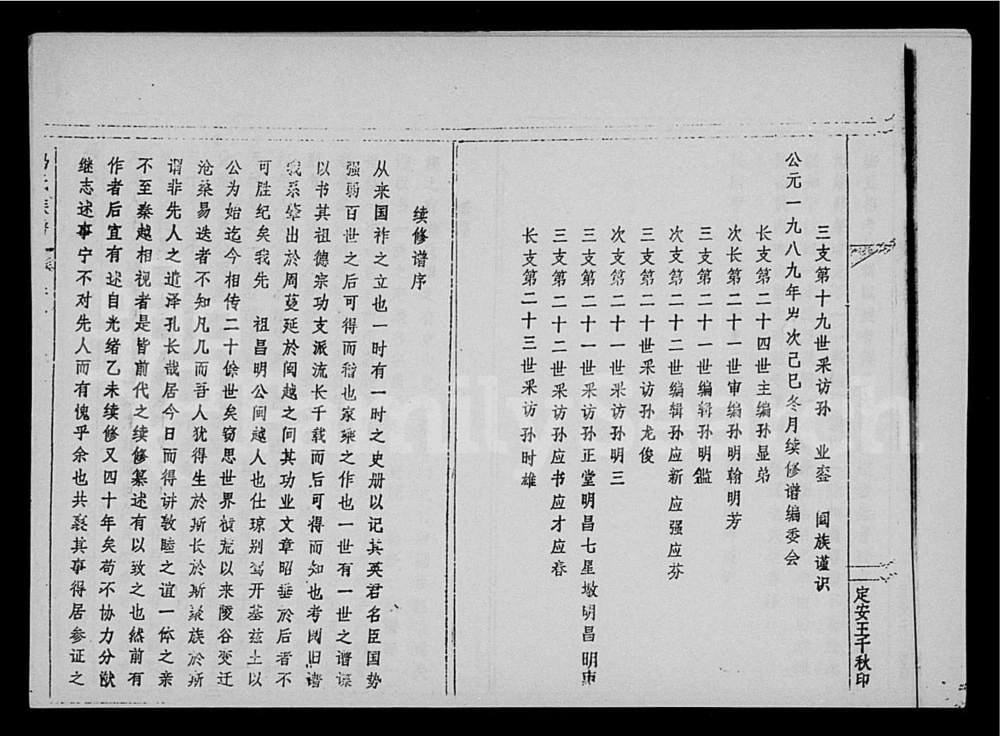 三支第十九世采访孙 业 阖族谨识
公元一九八九年岁次己巳冬月续修谱编委会
长支第二十四世主编孙显弟
次长第二十一世审编孙明翰明芳
三支第二十一世编辑孙明鑑
次支第二十二世编辑孙应新应强应芬
三支第二十世采访孙龙俊
次支第二十一世采访孙明三
三支第二十一世采访孙正堂明昌七星墩明昌明
三支第二十二世采访孙应书应才应春
长支第二十三世采访孙时雄
续修谱序
从来国祚之立也一时有一时之史册以记其英君名臣国势
强弱百世之后可得而稽也家乘之作也一世有一世之谱谋
以书其祖德宗功支派流长千载而后可得而知也考阅旧谱
我系肇出於周蔓延於闽越之间其功业文章昭垂於后者不
可胜纪矣我先 祖昌明公闽越人也仕琼别驾开基兹土以
公为始迄今相传二十馀世矣窃思世界横荒以来陵谷变迁
沧桑易迭者不知凡几而吾人犹得生於斯长於斯聚族於斯
谓非先人之道泽孔长哉居今日而得讲敦睦之谊一体之亲
不至秦越相视者是皆前代之续修纂述有以致之也然前有
作者后宜有述自光绪乙未续修又四十年矣苟不协力分猷
继志述事宁不对先人而有愧乎余也共襄其事得居参证之
定安王千秋印